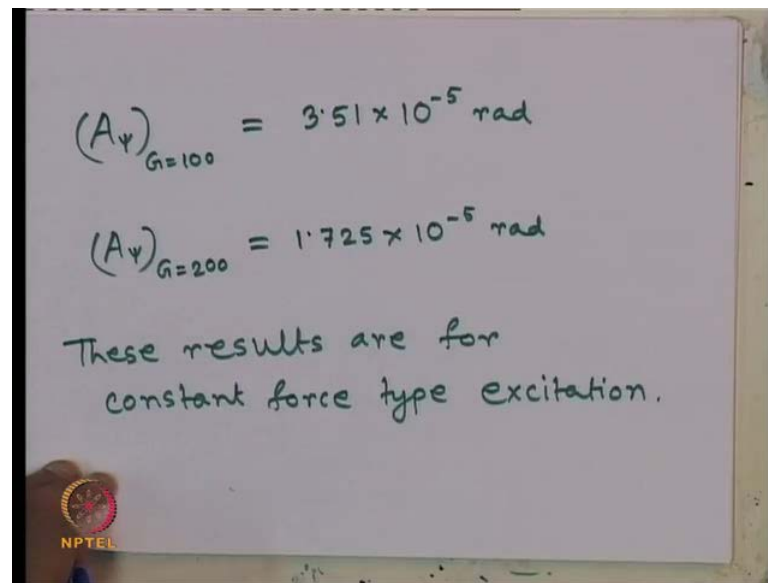 (Aψ)G=100 = 3.51 × 10⁻⁵ rad
(Aψ)G=200 = 1.725 × 10⁻⁵ rad
These results are for
constant force type excitation.
NPTEL